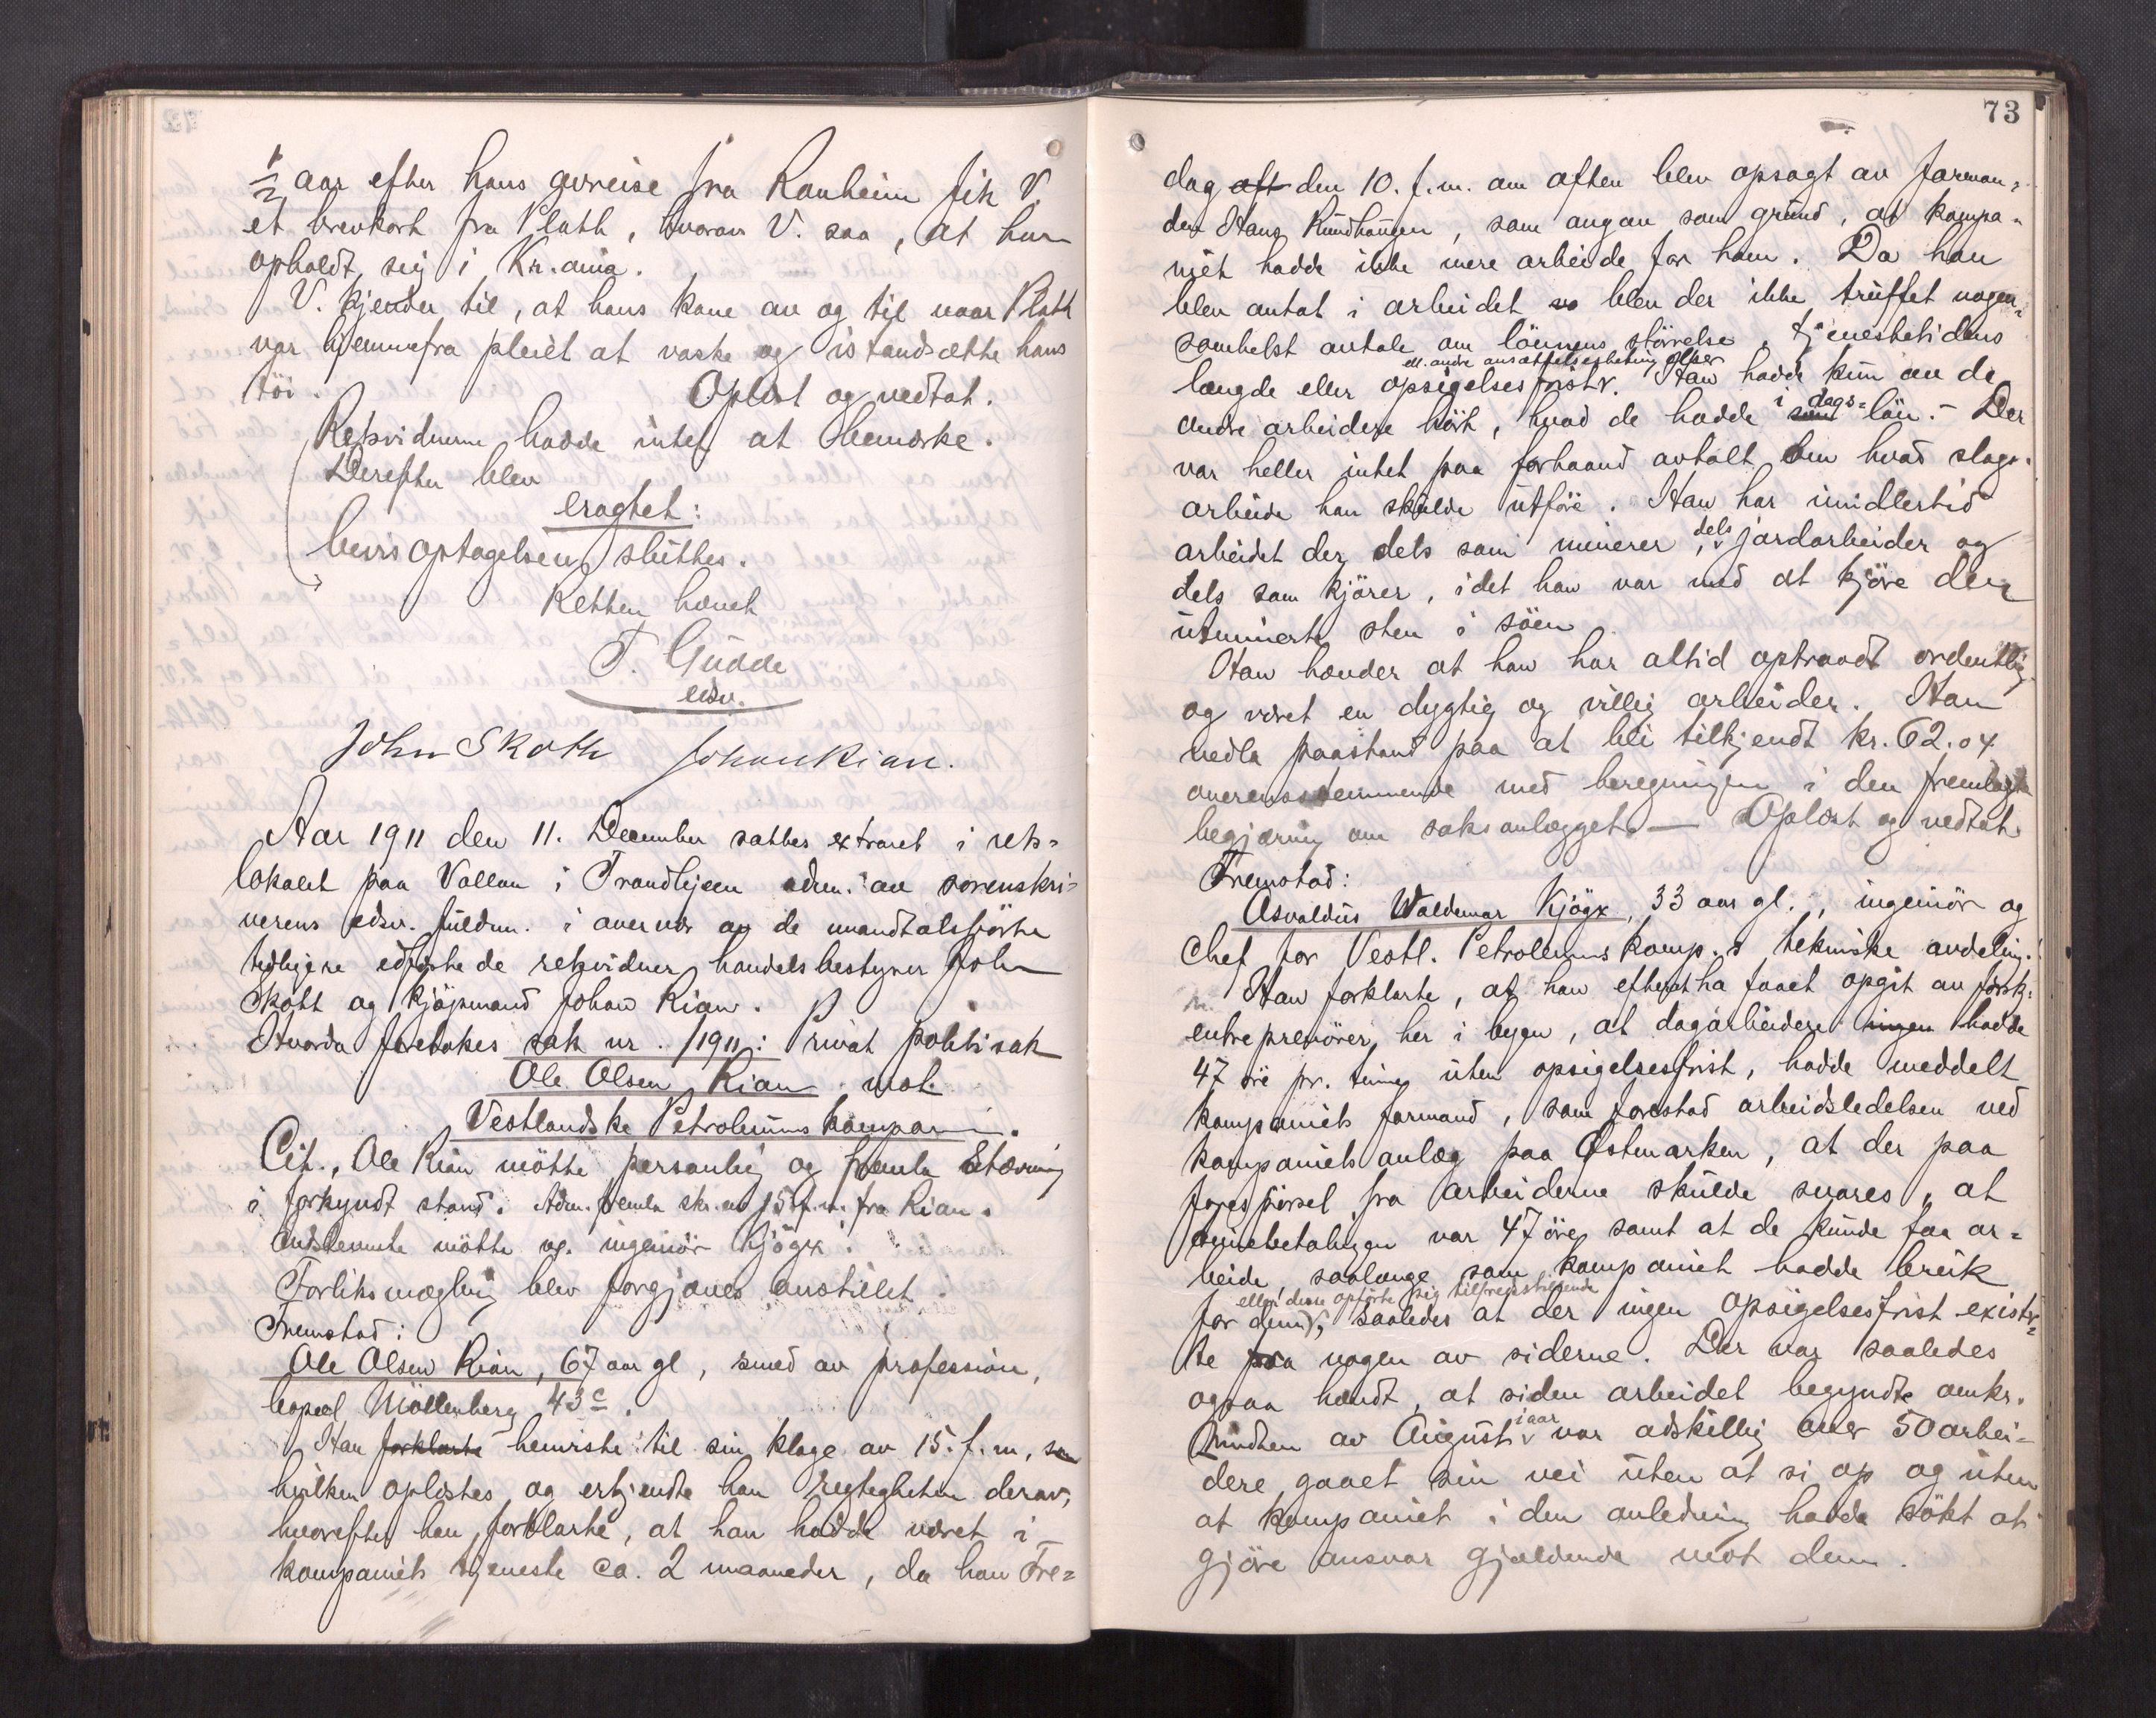 1/2 aar efter hans avreise fra Ranheim fik V.
et brevkort fra Plath, hvorav V. saa, at han
opholdt sig i Kr.ania.
V. kjender til, at hans kone av og til naar Plath
var hjemmefra pleiet at vaske og istandsætte hans
töi. Oplæst og vedtat.
Retsvidnerne hadde intet at bemerke.
Derefter blev
eragtet:
bevisoptagelsen sluttes.
Retten hævet
T. Gudde
edsv.
John Skoth Johan Kian.
Aar 1911 den 11. December sattes extraret i rets=
lokalet paa Vollan i Trondhjem adm. av sorenskri=
verens edsv. fuldm. i overvær av de mandtalsförte
tidligere edfæstede retsvidner handelsbestyrer John
Skott og kjöpmand Johan Kian.
Hvorda foretokes sak nr. /1911: Privat politisak
Ole Olsen Rian mot
Vestlandske Petroleumskompani.
Cit., Ole Rian mötte personlig og fremla stævning
i forkyndt stand. Adm. fremla skr. av 15. f.m. fra Rian.
Indstevnte mötte ved ingeniör Kjögx.
Forliksmægling blev forgjæves anstillet.
Fremstod:
Ole Olsen Rian, 67 aar gl, smed av profession,
bopæl Möllenberg 43c.
Han forklarte henviste til sin klage av 15. f.m, som
hvilken oplæstes og erkjendte han rigtigheten derav,
hvorefter han forklarte, at han hadde været i
kompaniets tjeneste ca. 2 maaneder, da han Fre=
73
dag aft den 10. f.m. om aften blev opsagt av forman=
den Hans Rundhaugen, som angav som grund, at kompa=
niet hadde ikke mere arbeide for ham. Da han
blev antat i arbeidet blev der ikke truffet nogen=
somhelst avtale om lönnens störrelse, tjenestetidens
ell. andre ansættelsesbetingelser
længde eller opsigelsesfrist. Han hadde kun av de
andre arbeidere hört, hvad de hadde i dags= som lön. – Der
var heller intet paa forhaand avtalt om hvad slags
arbeide han skulde utföre. Han har imidlertid
arbeidet der dels som minerer, dels jordarbeider og
dels som kjörer, idet han var med at kjöre den
utminerte sten i söen.
Han hævder at han har altid optraadt ordentlig
og været en dygtig og villig arbeider. Han
nedla paastand paa at bli tilkjendt kr. 62.04
overensstemmende med beregningen i den fremlagte
begjæring om saksanlægget. — Oplæst og vedtat.
Fremstod:
Asvaldus Waldemar Kjögx, 33 aar gl., ingeniör og
chef for Vestl. Petroleumskomp.s tekniske avdeling.
Han forklarte, at han efter at ha faaet opgit av forsk.
entreprenörer her i byen, at dagarbeidere ingen hadde
47 öre pr. time uten opsigelsesfrist, hadde meddelt
kompaniets formand, som forestod arbeidsledelsen ved
kompaniets anlæg paa Østmarken, at der paa
forespörsel fra arbeiderne skulde svares, at
timebetalingen var 47 öre, samt at de kunde faa ar=
beide, saalænge som kompaniet hadde bruk
eller disse opförte sig tilfredsstillende
for dem, saaledes at der ingen opsigelsesfrist exister=
te paa nogen av siderne. Der var saaledes
ogsaa hændt, at siden arbeidet begyndte omkr.
midten av August iaar var adskillig over 50 arbei=
dere gaaet sin vei uten at si op og uten
at kompaniet i den anledning hadde sökt at
gjöre ansvar gjældende mot dem.